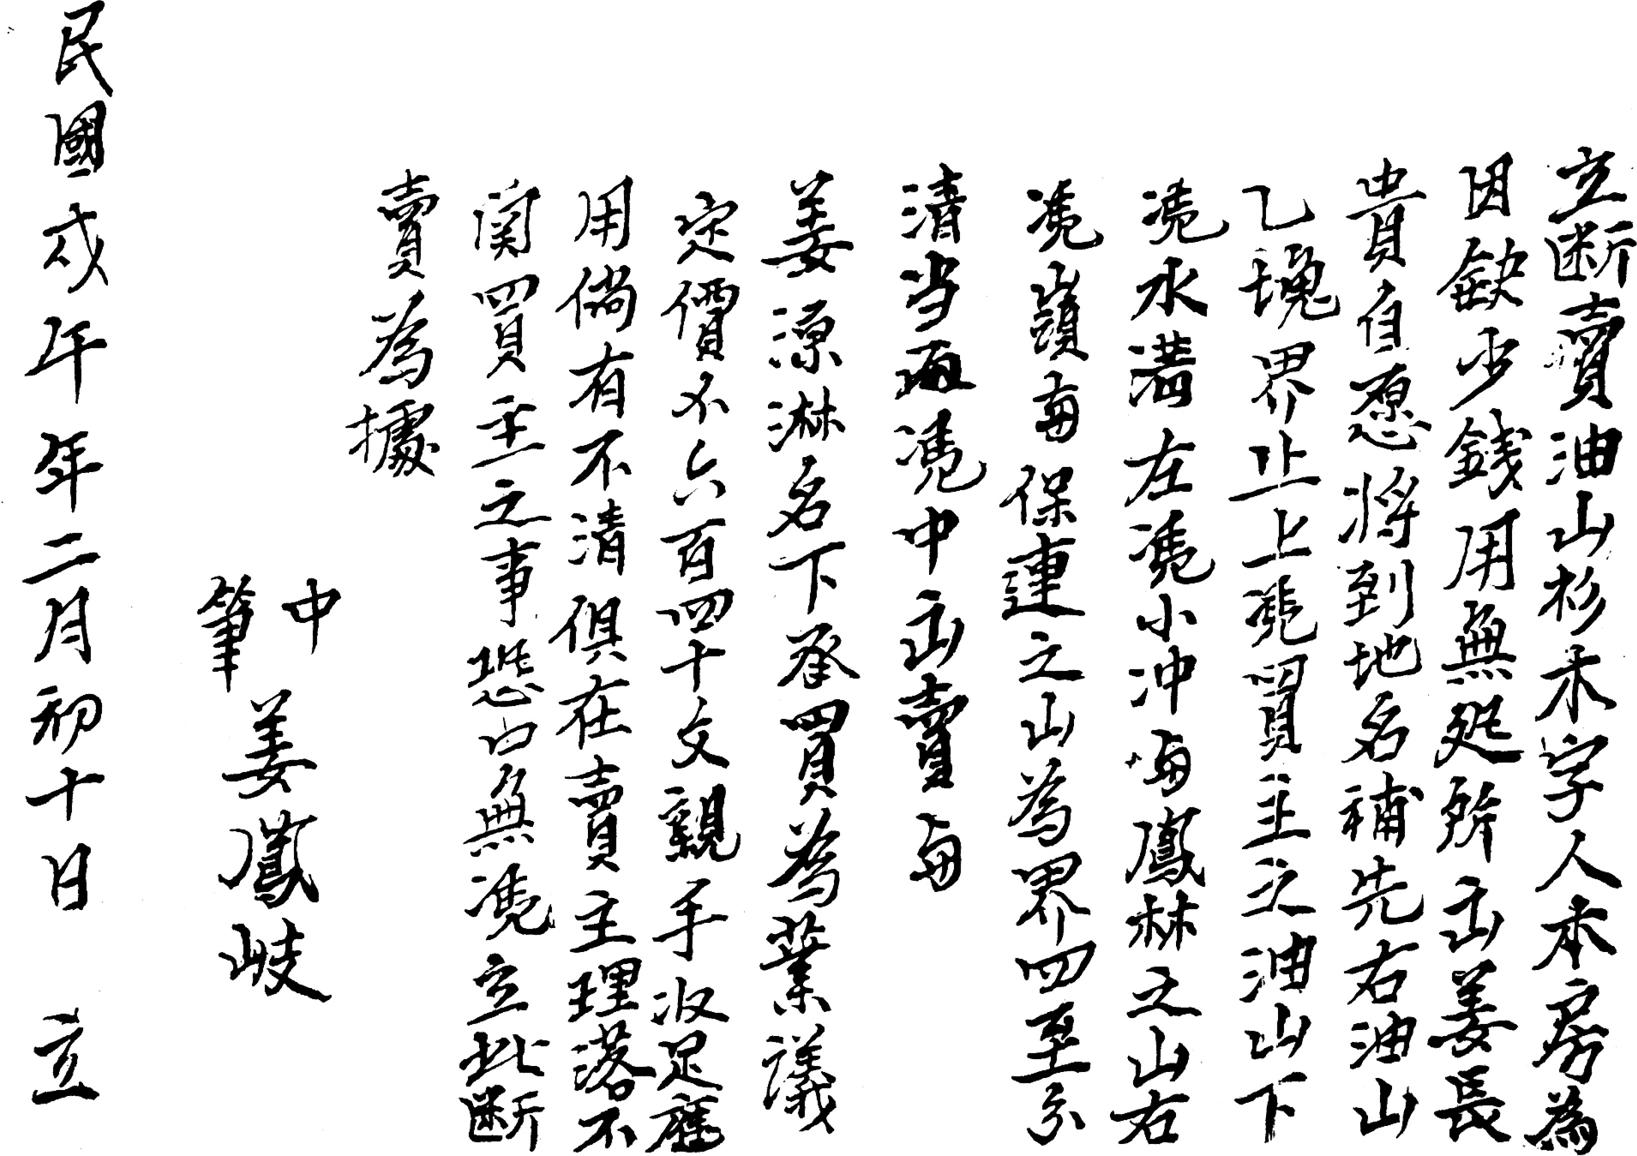 立断賣油山杉木字人本房為
因缺少錢用無処所出姜長
貴自愿將到地名補先右油山
乙塊界止上凴買主之油山下
凴水溝左凴小冲与鳳林之山右
凴嶺与保連之山為界四至分
清当面凴中出賣与
姜源淋名下承買為業議
定價不六百四十文親手收足應
用倘有不清俱在賣主理落不
関買主之事恐口無凴立此断
賣為據
中
筆 姜鳳岐
民國戊午年二月初十日 立